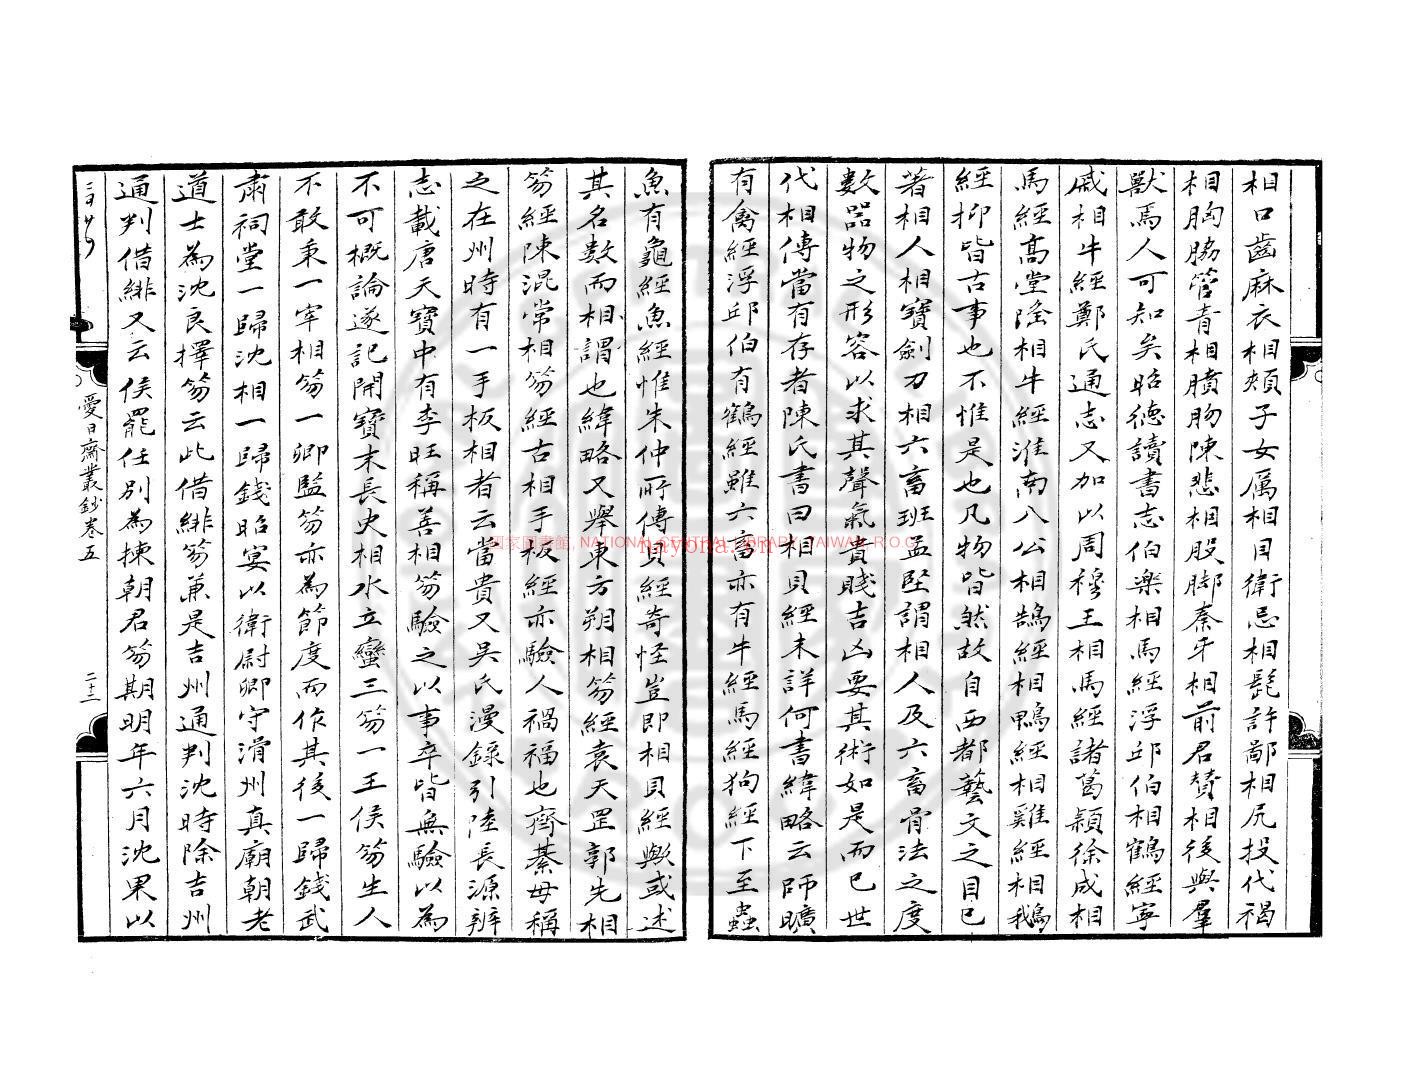 相口齒麻衣相頰子女厲相目衛忌相髭許鄙相尻投代褐
相胸脇管青相䐁肳陳悲相股脚秦牙相前君贊相後與羣
獸焉人可知矣昭德讀書志伯樂相馬經浮邱伯相鶴經寧
戚相牛經鄭氏通志又加以周穆王相馬經諸葛穎徐成相
馬經高堂隆相牛經淮南八公相鵠經相鴨經相雞經相鵝
經抑皆古事也不惟是也凡物皆然故自西都藝文之目已
著相人相寶劍刀相六畜班孟堅謂相人及六畜骨法之度
數器物之形容以求其聲氣貴賤吉凶要其術如是而已世
代相傳當有存者陳氏書曰相貝經未詳何書緯略云師曠
有禽經浮邱伯有鶴經雖六畜亦有牛經馬經狗經下至蟲
魚有龜經魚經惟朱仲所傳貝經奇怪豈即相貝經歟或述
其名數而相謂也緯略又舉東方朔相笏經袁天罡郭先相
笏經陳混常相笏經古相手板經亦驗人禍福也齊綦毋稱
之在州時有一手板相者云當貴又吳氏漫錄引陸長源辨
志載唐天寶中有李旺稱善相笏驗之以事卒皆無驗以為
不可概論遂記開寶末長史相水立蠻三笏一王侯笏生人
不敢秉一宰相笏一卿監笏亦為節度而作其後一歸錢武
肅祠堂一歸沈相一歸錢昭宴以衛尉卿守滑州真廟朝老
道士為沈良擇笏云此借緋笏兼是吉州通判沈時除吉州
通判借緋又云侯罷任別為揀朝君笏期明年六月沈果以
愛日齋叢鈔卷五
二十二
國家圖書館, NATIONAL CENTRAL LIBRARY, TAIWAN, R.O.C.
nayona.cn